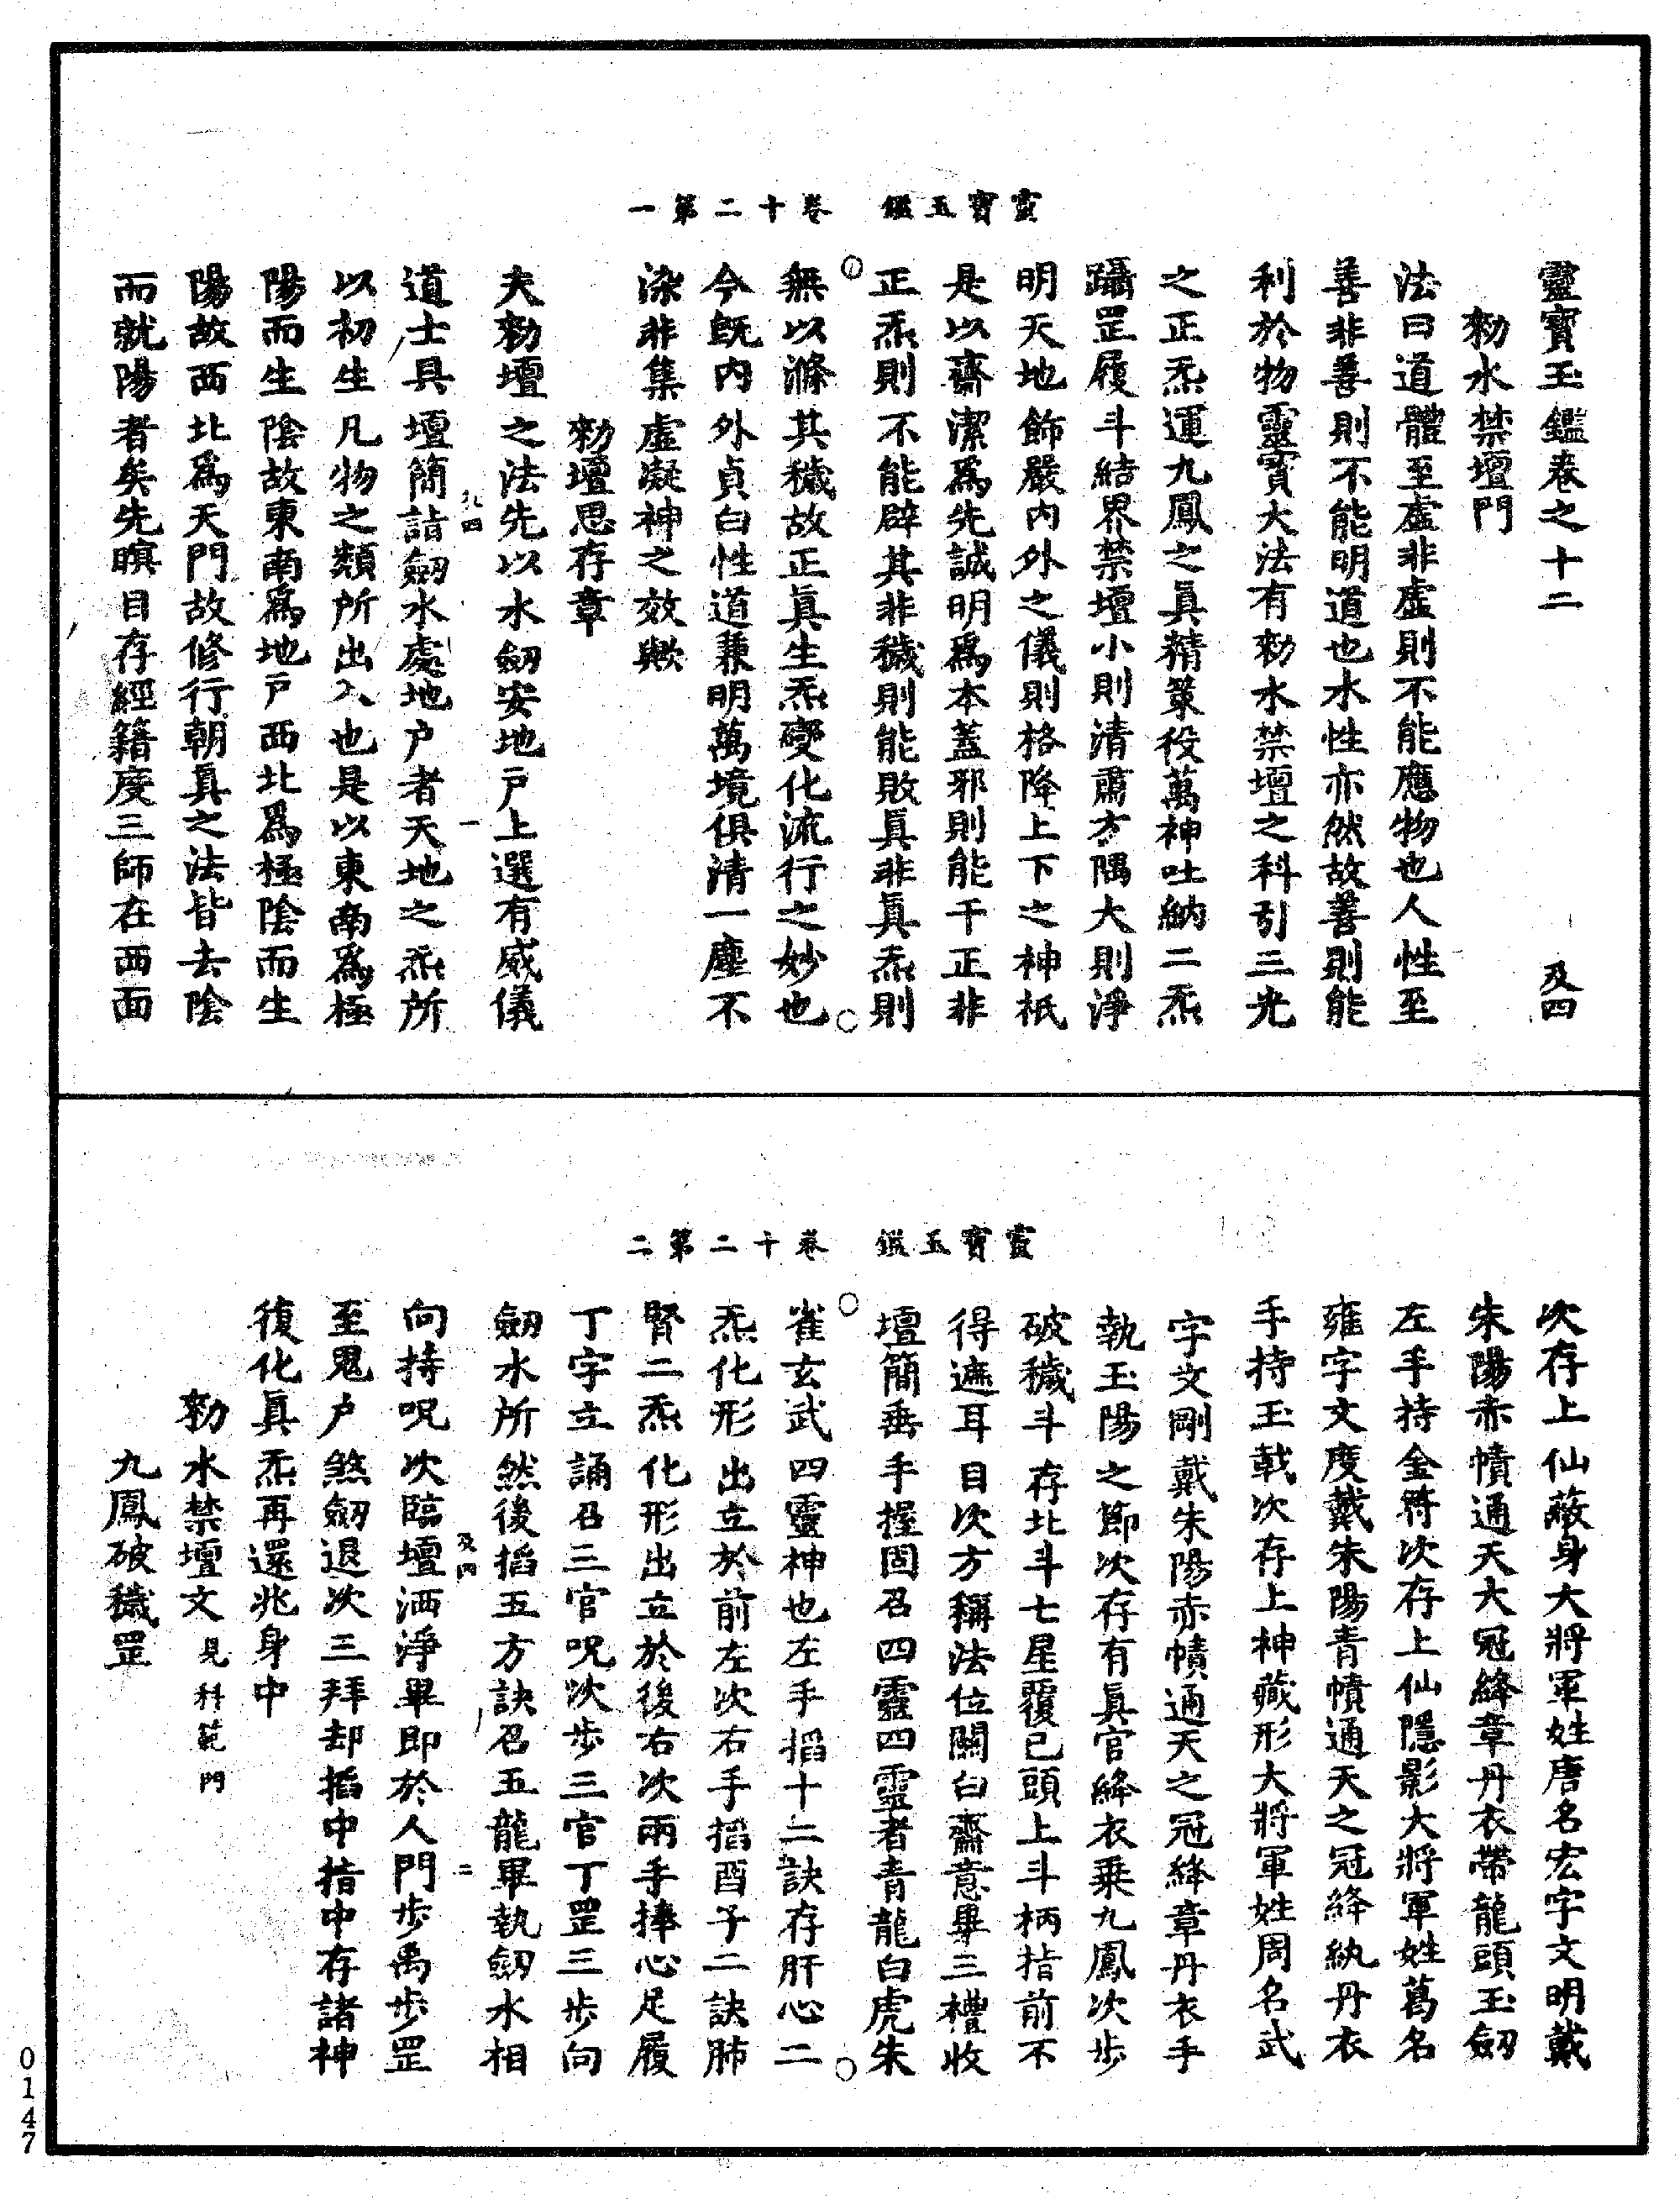 靈寶玉鑑卷十二第一
靈寶玉鑑卷之十二 及四
勑水禁壇門
法曰道體至虛非虛則不能應物也人性至
善非善則不能明道也水性亦然故善則能
利於物靈寶大法有勑水禁壇之科引三光
之正炁運九鳳之眞精策役萬神吐納二炁
躡罡履斗結界禁壇小則清肅方隅大則淨
明天地飾嚴內外之儀則格降上下之神祇
是以齋潔爲先誠明爲本蓋邪則能干正非
正炁則不能辟其非穢則能敗眞非眞炁則
無以滌其穢故正眞生炁變化流行之妙也
今旣內外貞白性道兼明萬境俱清一塵不
染非集虛凝神之效歟
勑壇思存章
夫勑壇之法先以水劒安地戶上選有威儀
道士具壇簡詣劒水處地戶者天地之炁所
以初生凡物之類所出入也是以東南爲極
陽而生陰故東南爲地戶西北爲極陰而生
陽故西北爲天門故修行朝眞之法皆去陰
而就陽者矣先瞑目存經籍度三師在西面
靈寶玉鑑卷十二第二
次存上仙蔽身大將軍姓唐名宏字文明戴
朱陽赤幘通天大冠絳章丹衣帶龍頭玉劒
左手持金符次存上仙隱影大將軍姓葛名
雍字文度戴朱陽青幘通天之冠絳紈丹衣
手持玉戟次存上神藏形大將軍姓周名武
字文剛戴朱陽赤幘通天之冠絳章丹衣手
執玉陽之節次存有眞官絳衣乗九鳳次步
破穢斗存北斗七星覆己頭上斗柄指前不
得遮耳目次方稱法位關白齋意畢三禮收
壇簡垂手握固召四靈四靈者青龍白虎朱
雀玄武四靈神也左手搯十二訣存肝心二
炁化形出立於前左次右手搯酉子二訣肺
腎二炁化形出立於後右次兩手捧心足履
丁字立誦召三官呪次步三官丁罡三步向
劒水所然後搯五方訣召五龍畢執劒水相
向持呪次臨壇洒淨畢即於人門步禹步罡
至鬼戶煞劒退次三拜却搯中指中存諸神
復化眞炁再還兆身中
勑水禁壇文 見科範門
九鳳破穢罡
0147